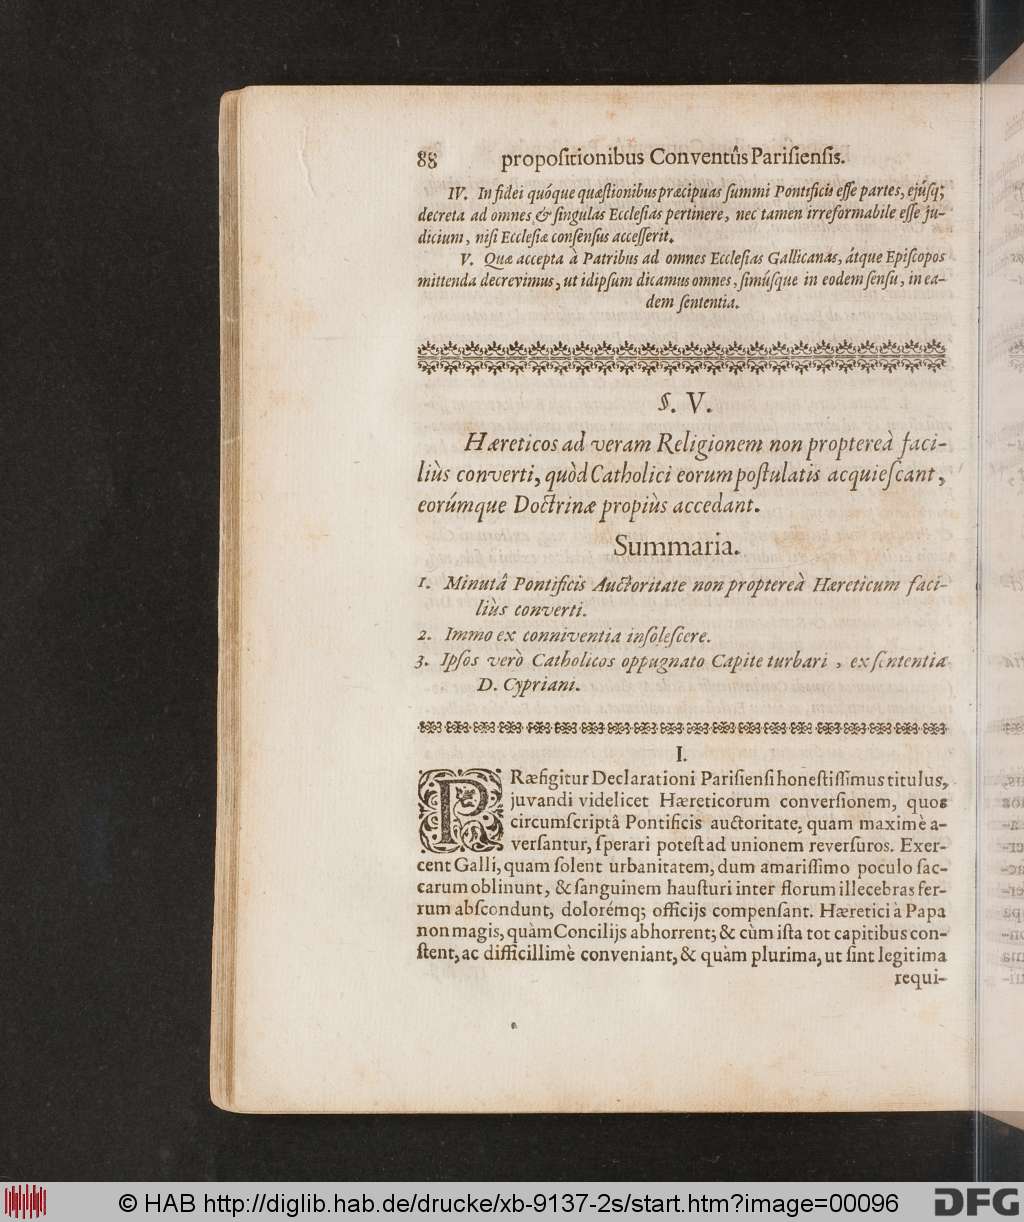 88 propoſitionibus Conventûs Pariſienſis.
IV. In fidei quóque quæſtionibus præcipuas ſummi Pontificis eſſe partes, ejúſq;
decreta ad omnes & ſingulas Eccleſias pertinere, nec tamen irreformabile eſſe ju-
dicium, niſi Eccleſiæ conſenſus acceſſerit.
V. Quæ accepta à Patribus ad omnes Eccleſias Gallicanas, átque Epiſcopos
mittenda decrevimus, ut idipſum dicamus omnes, ſimúſque in eodem ſenſu, in ea-
dem ſententia.
§. V.
Hæreticos ad veram Religionem non proptereà faci-
liùs converti, quòd Catholici eorum poſtulatis acquieſcant,
eorúmque Doctrinæ propiùs accedant.
Summaria.
1. Minutâ Pontificis Auctoritate non proptereà Hæreticum faci-
liùs converti.
2. Immo ex conniventia inſoleſcere.
3. Ipſos verò Catholicos oppugnato Capite turbari, ex ſententia
D. Cypriani.
I.
PRæfigitur Declarationi Pariſienſi honeſtiſſimus titulus,
juvandi videlicet Hæreticorum converſionem, quos
circumſcriptâ Pontificis auctoritate, quam maximè a-
verſantur, ſperari poteſt ad unionem reverſuros. Exer-
cent Galli, quam ſolent urbanitatem, dum amariſſimo poculo ſac-
carum oblinunt, & ſanguinem hauſturi inter florum illecebras fer-
rum abſcondunt, dolorémq; officijs compenſant. Hæretici à Papa
non magis, quàm Concilijs abhorrent; & cùm iſta tot capitibus con-
ſtent, ac difficillimè conveniant, & quàm plurima, ut ſint legitima
requi-
© HAB http://diglib.hab.de/drucke/xb-9137-2s/start.htm?image=00096
DFG